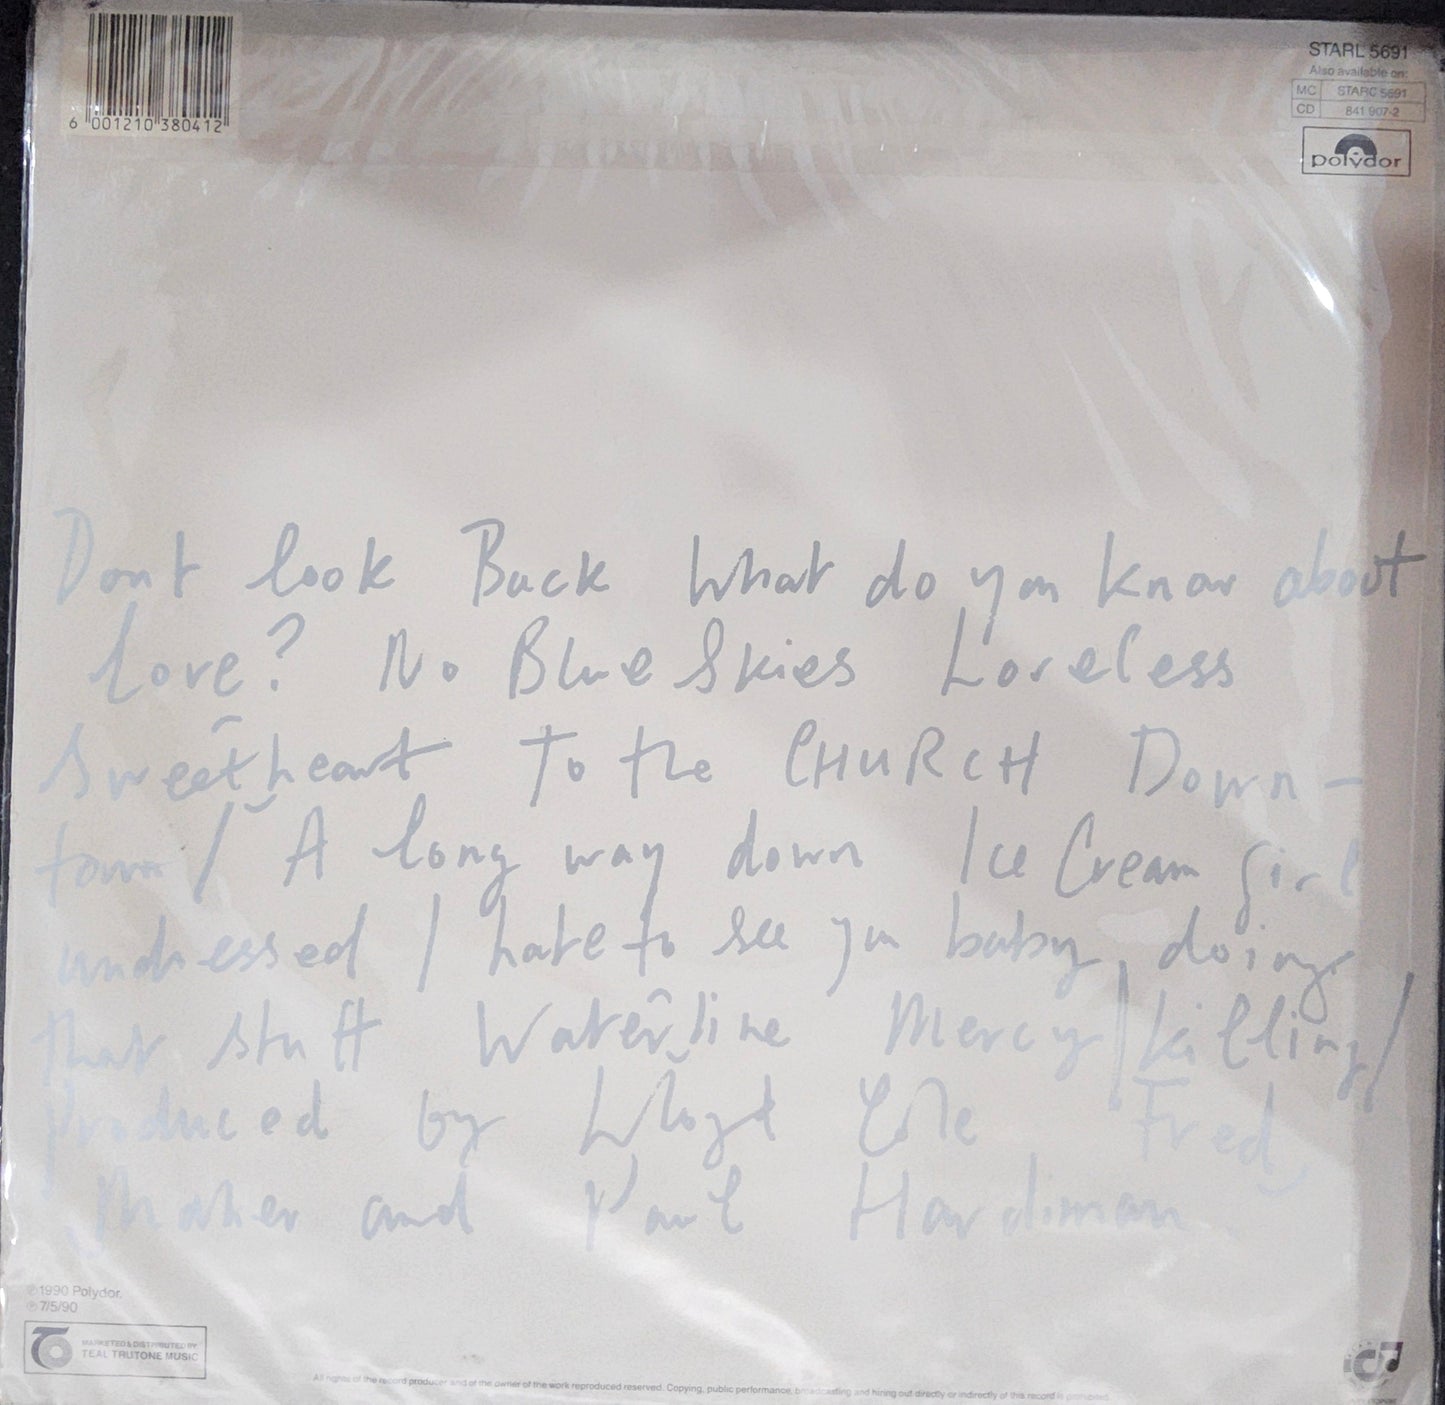 6 001210 380412
STARL 5691
Also available on:
MC STARC 5691
CD 841 907-2
polydor
Dont look Back What do you know about
love? No Blue Skies Loveless
Sweetheart To the CHURCH Down-
town / A long way down Ice Cream girl
undressed / hate to see you baby doing
that stuff Waterline Mercy / killing /
Produced by Lloyd Cole Fred
Maher and Paul Hardiman
℗1990 Polydor.
℗7/5/90
MARKETED & DISTRIBUTED BY
TEAL TRUTONE MUSIC
All rights of the record producer and of the owner of the work reproduced reserved. Copying, public performance, broadcasting and hiring out directly or indirectly of this record is prohibited